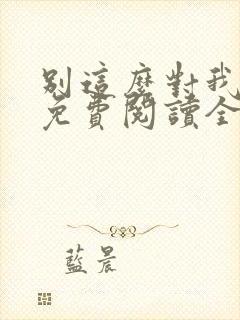 別這麼對我
免費閱讀全
藍晨